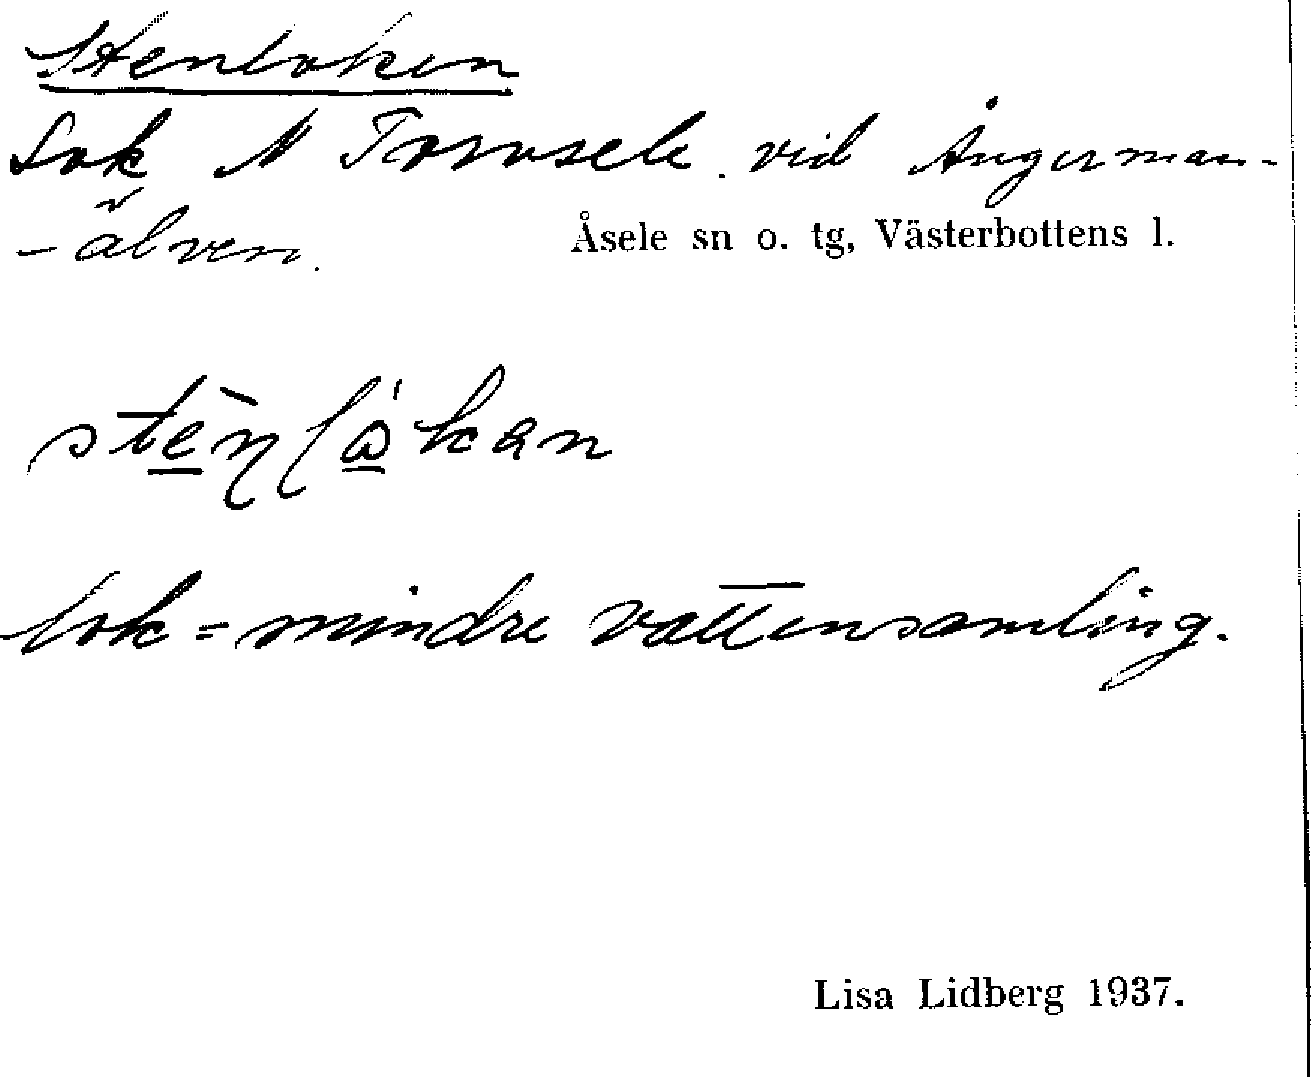 Stenloken
Lok N Torvsele. vid Ångerman-
-älven.
Åsele sn o. tg, Västerbottens l.
lok = mindre vattensamling.
Lisa Lidberg 1937.